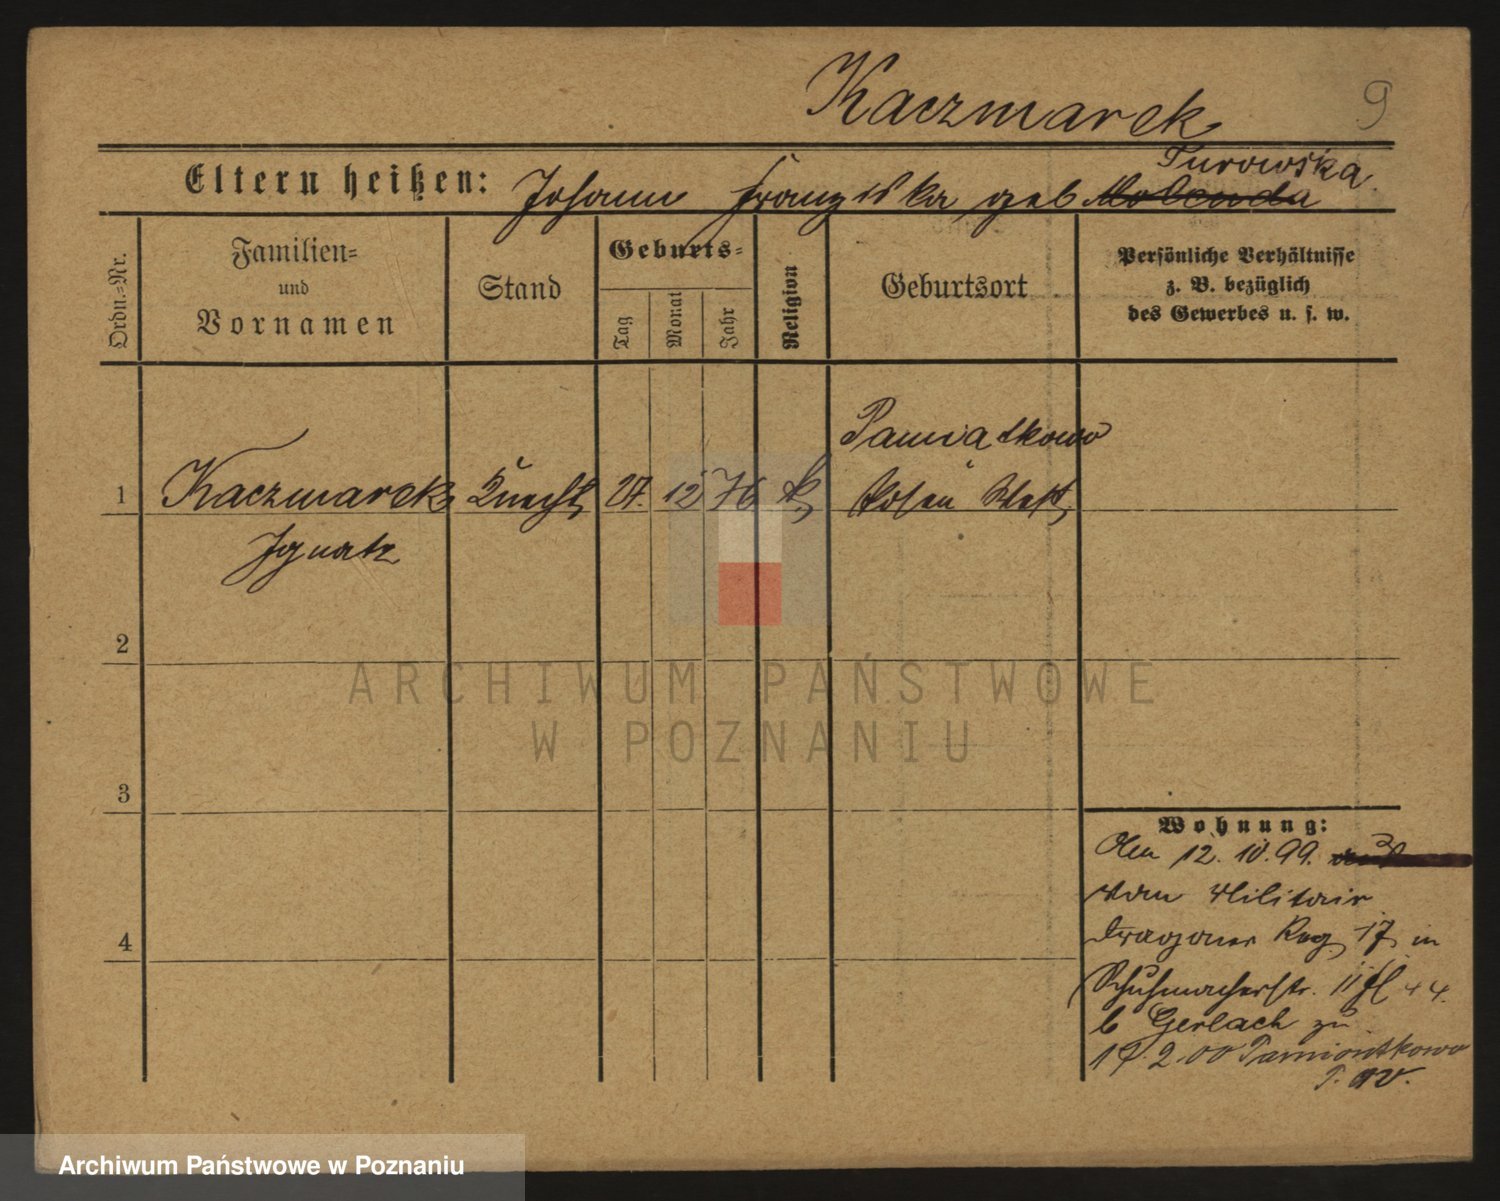 Kaczmarek
9
Turowska
Eltern heißen: Johann Franziska geb Molenda
Ordn.-Nr.
Familien-
und
Vornamen
Stand
Geburts-
Tag
Monat
Jahr
Religion
Geburtsort
Persönliche Verhältnisse
z. B. bezüglich
des Gewerbes u. s. w.
Pamiatkowo
1 Kaczmarek Knecht 27. 12 76 k Posen West
Ignatz
2
ARCHIWUM PAŃSTWOWE
W POZNANIU
3
Wohnung:
Den 12. 10. 99.
vom Militair
Dragoner Reg 17 in
Schuhmacherstr. 11
b Gerlach zu
17. 2. 00 Pamiontkowo
4
Archiwum Państwowe w Poznaniu